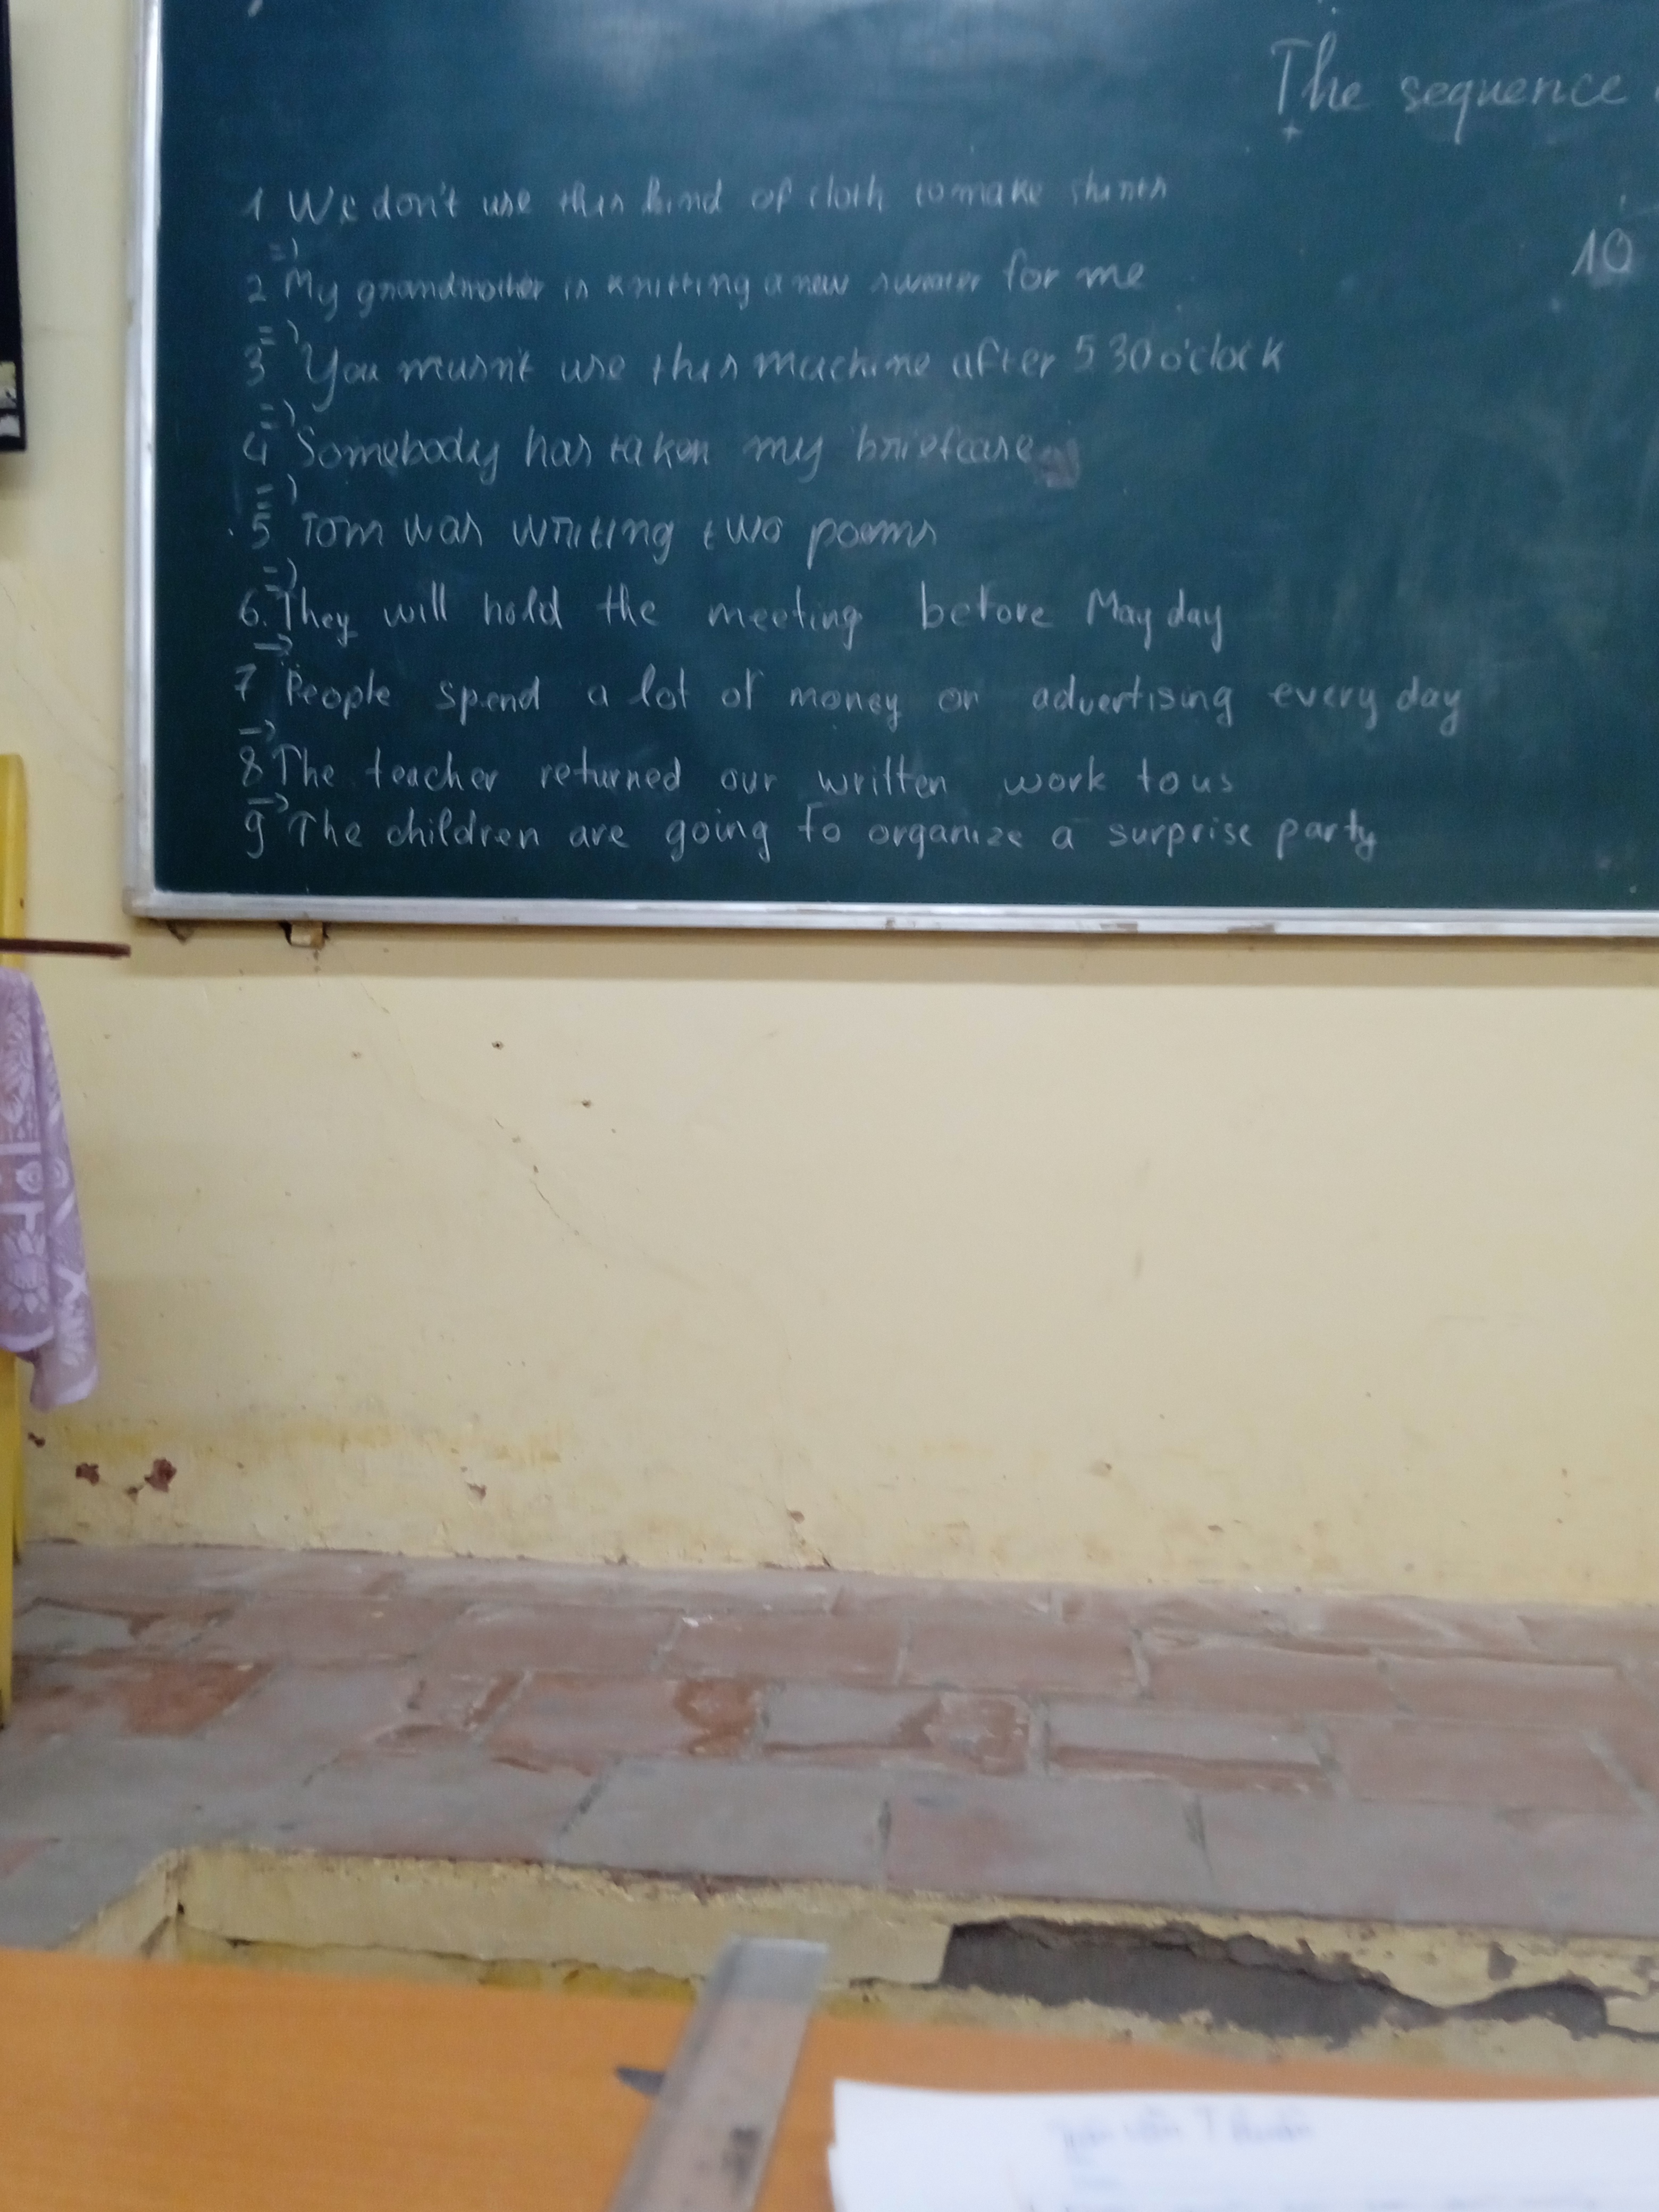 The sequence
1 We don't use this kind of cloth to make shirts
=>
10
2 My grandmother is knitting a new sweater for me
=>
3 You musn't use this machine after 5 30 o'clock
=>
4 Somebody has taken my briefcase
=>
5 Tom was writing two poems
=>
6. They will hold the meeting before May day
->
7 People spend a lot of money on advertising every day
->
8 The teacher returned our written work to us
->
9 The children are going to organize a surprise party